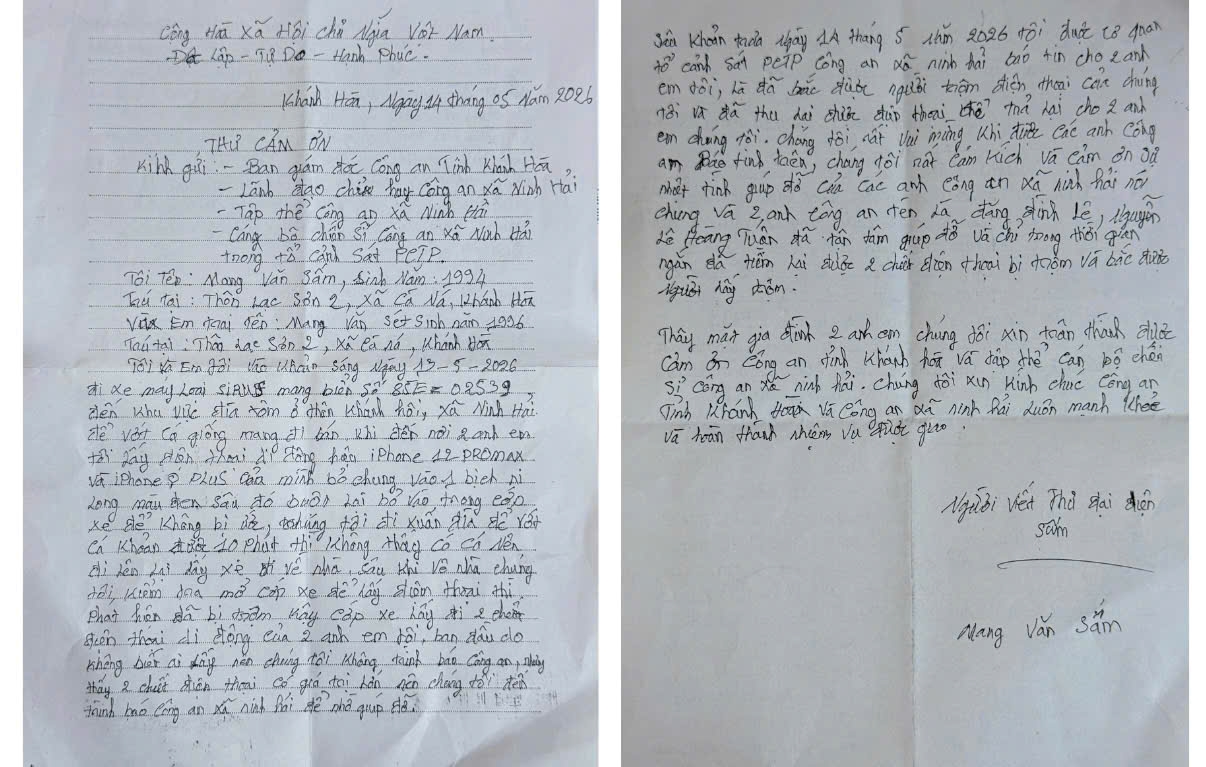 Cộng Hoà Xã Hội chủ Nghĩa Việt Nam.
Độc Lập - Tự Do - Hạnh Phúc.
Khánh Hoà, Ngày 14 tháng 05 năm 2026
THƯ CẢM ƠN
Kính gửi: - Ban giám đốc Công an Tỉnh Khánh Hoà
- Lãnh đạo chỉ huy Công an xã Ninh Hải
- Tập thể Công an xã Ninh Hải
- Cáng bộ chiến sĩ Công an xã Ninh Hải
trong tổ Cảnh Sát PCTP.
Tôi Tên: Mang Văn Sắm, Sinh Năm: 1994
Trú tại: Thôn Lạc Sơn 2, Xã Cà Ná, Khánh Hoà
Và Em trai tên: Mang Văn Sét Sinh năm 1996
Trú tại: Thôn Lạc Sơn 2, xã Cà ná, Khánh Hoà
Tôi và Em tôi vào Khoản sáng Ngày 13-5-2026
đi xe máy Loại SiRUS mang biển số 85E = 02539
đến Khu Vực đìa tôm ở thôn Khánh hội, xã Ninh Hải
để vớt Cá giống mang đi bán, khi đến nơi 2 anh em
tôi lấy điện thoại di động hiệu iPhone 12 PROMAX
và iPhone 8 PLUS của mình bỏ chung vào 1 bịch ni
Long màu đen sau đó buột lại bỏ vào trong cốp
xe để không bị ướt, chúng tôi đi xuấn đìa để vớt
cá Khoản được 10 Phút thì không thấy có cá nên
đi lên Lại lấy xe đi về nhà, sau khi về nhà chúng
tôi, kiểm tra mở cốp xe để lấy điện thoại thì
Phát hiện đã bị trộm cậy cốp xe lấy đi 2 chiếc
điện thoại di động của 2 anh em tôi, ban đầu do
không biết ai lấy nên chúng tôi không trình báo Công an, nhưng
thấy 2 chiếc điện thoại có giá trị lớn nên chúng tôi đến
trình báo Công an xã ninh hải để nhờ giúp đỡ.
Sau Khoản trưa Ngày 14 tháng 5 năm 2026 tôi được cơ quan
tổ cảnh sát PCTP Công an xã ninh hải báo tin cho 2 anh
em tôi, là đã bắc được người trộm điện thoại của chúng
tôi và đã thu lại được điện thoại để trả lại cho 2 anh
em chúng tôi. Chúng tôi rất vui mừng khi được các anh Công
an báo tinh trên, chúng tôi rất cảm kích và cảm ơn sự
nhiệt tình giúp đỡ của các anh công an xã ninh hải nói
chung và 2 anh công an tên là đặng đình Lê, Nguyễn
Lê Hoàng Tuấn đã tận tâm giúp đỡ và chỉ trong thời gian
ngắn đã tìm lại được 2 chiếc điện thoại bị trộm và bắc được
người lấy trộm.
Thây mặt gia đình 2 anh em chúng tôi xin chân thành được
cảm ơn công an tỉnh Khánh hoà và tập thể cán bộ chiến
sĩ công an xã ninh hải. Chúng tôi xin kính chúc Công an
Tỉnh Khánh Hoà và Công an xã ninh hải luôn mạnh khoẻ
và hoàn thành nhiệm vụ được giao.
Người viết Thư đại diện
Sắm
Mang Văn Sắm